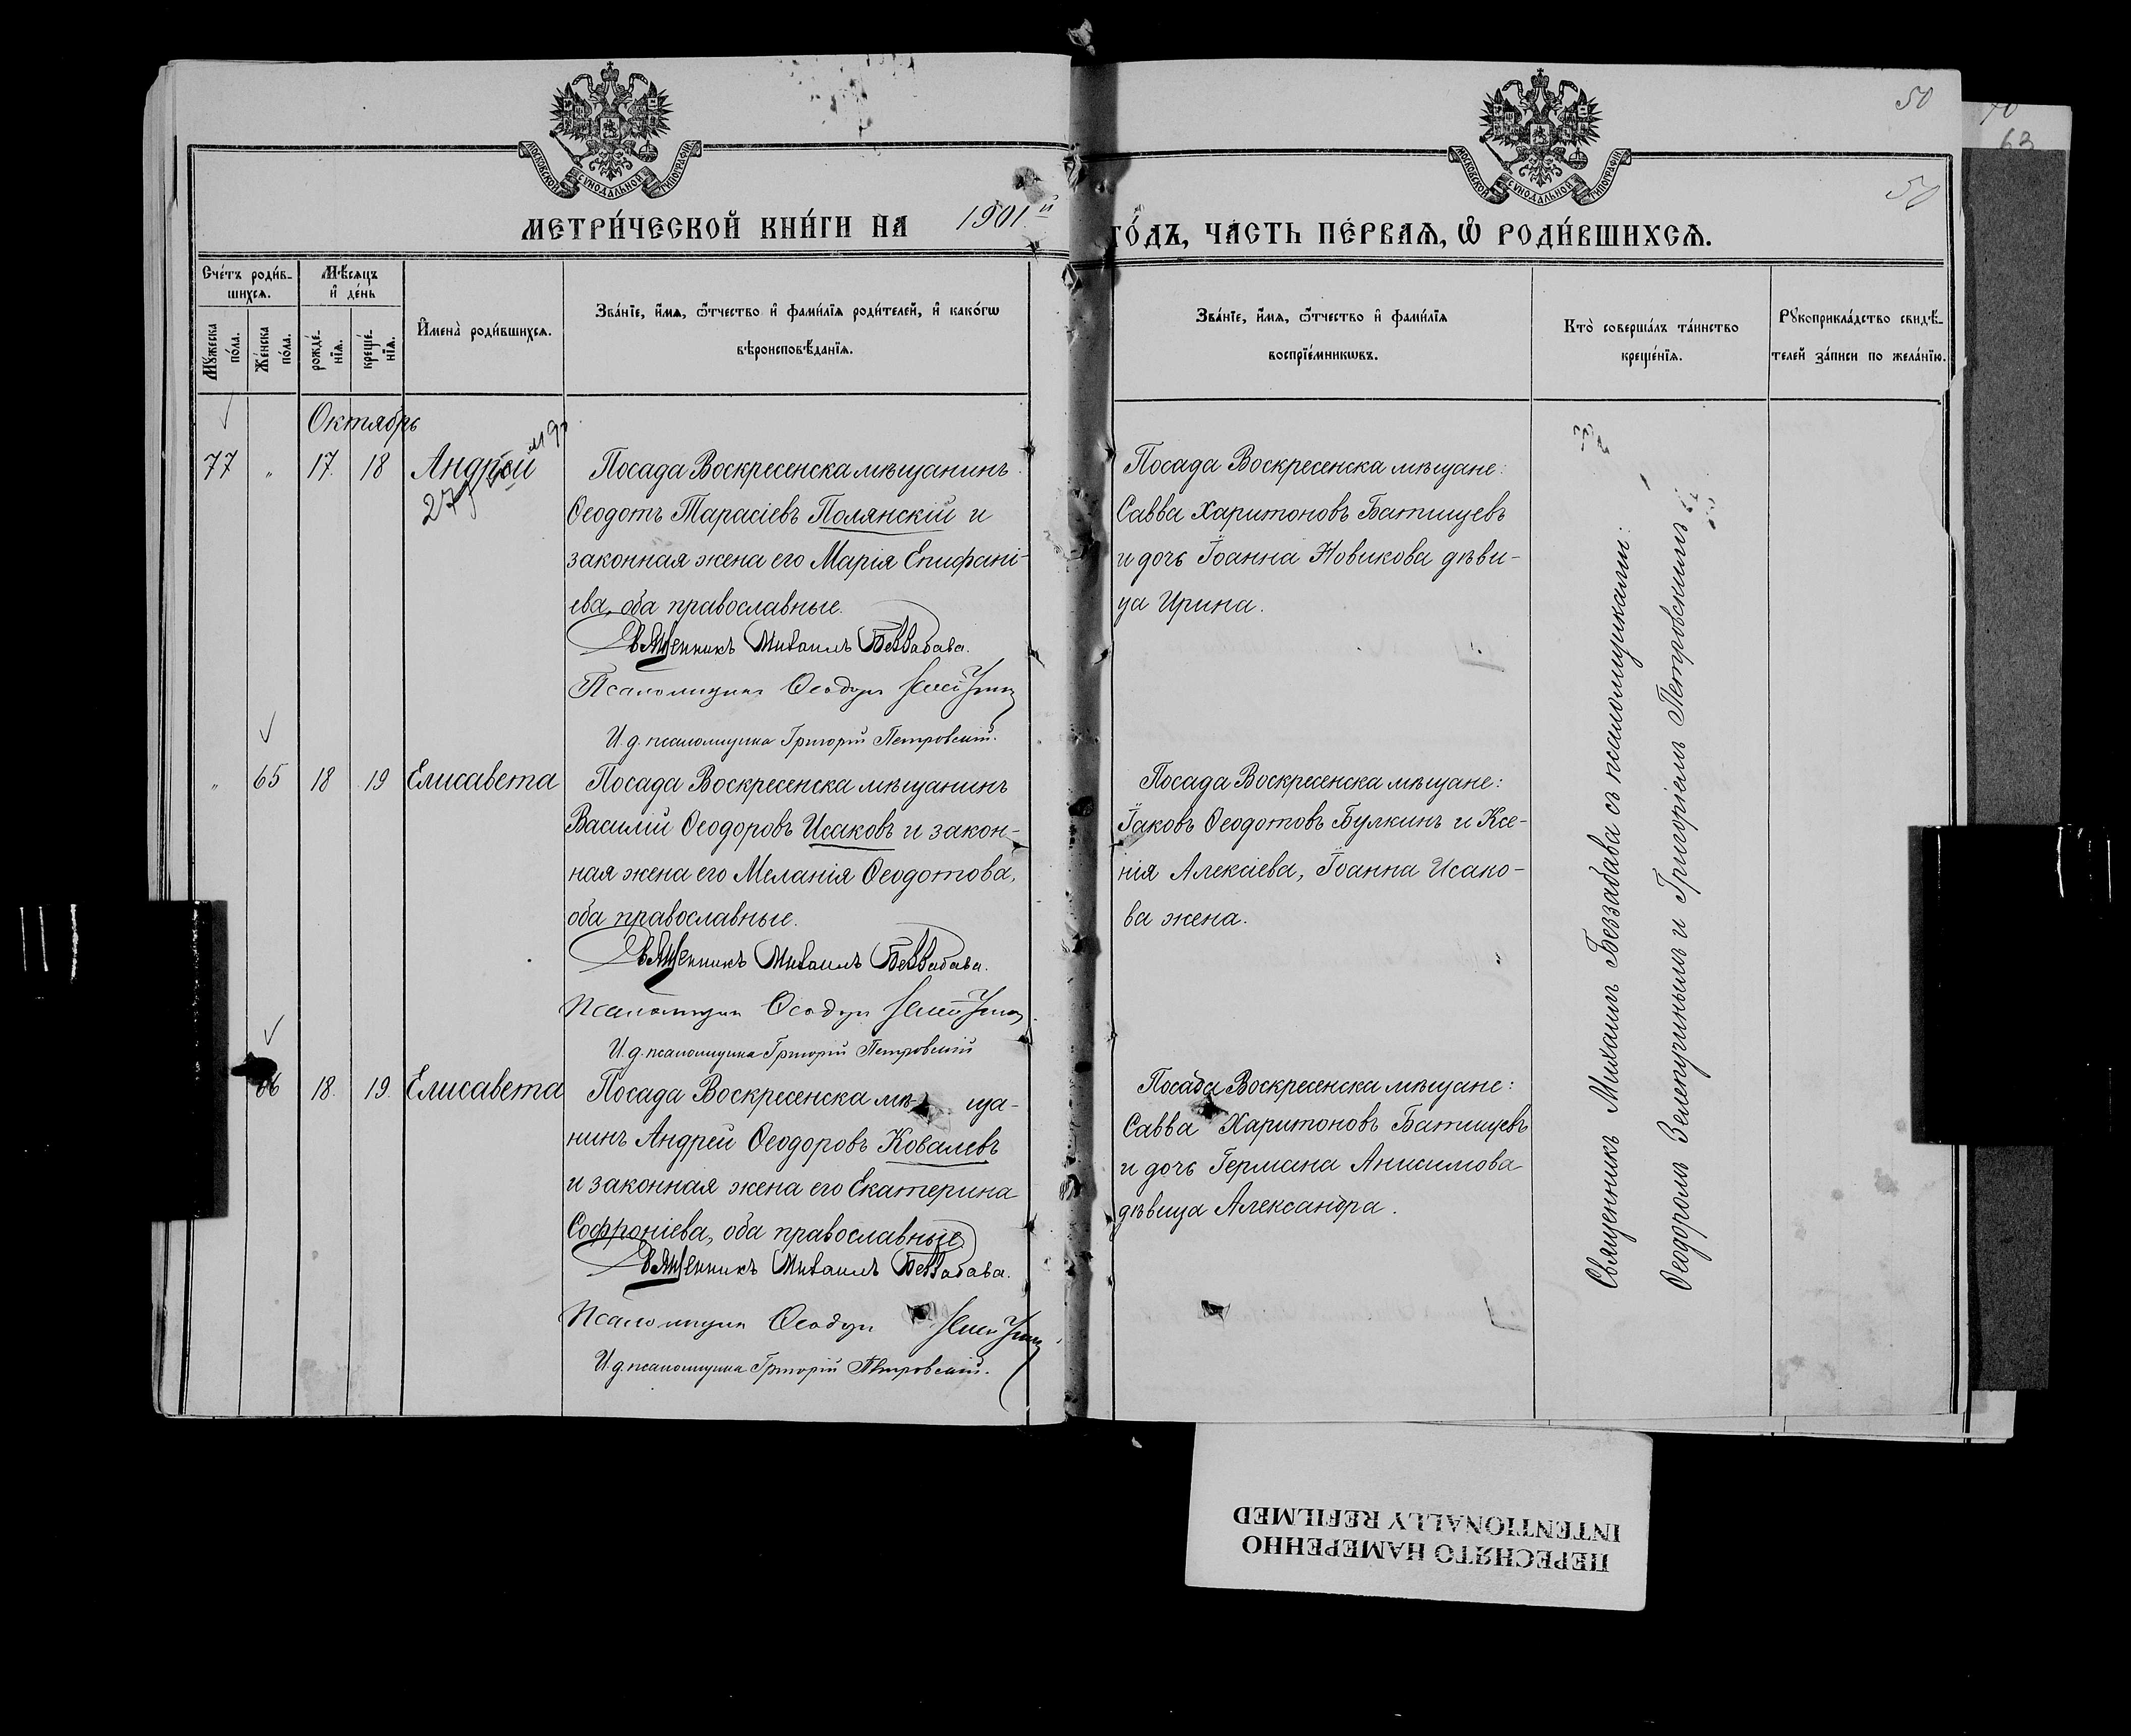 50
70
63
МОСКОВСКОЙ СѴНОДАЛЬНОЙ ТИПОГРАФІИ
МОСКОВСКОЙ СѴНОДАЛЬНОЙ ТИПОГРАФІИ
50
МЕТРИ́ЧЕСКОЙ КНИ́ГИ НА 1901й ГО́ДЪ, ЧАСТЬ ПЕ́РВАѦ, Ѡ РОДИ́ВШИХСѦ.
Сче́тъ роди́в-
шихсѧ.
Мꙋ́жеска
по́ла.
Же́нска
по́ла.
Мѣ́сѧцъ
и҆ де́нь
рожде́-
нїѧ.
креще́-
нїѧ.
И҆мена̀ роди́вшихсѧ.
Зва́нїе, и҆́мѧ, ѻ҆́тчество и҆ фами́лїѧ роди́телей, и҆ како́гѡ
вѣроисповѣ́данїѧ.
Зва́нїе, и҆́мѧ, ѻ҆́тчество и҆ фами́лїѧ
воспрїе́мникѡвъ.
Кто̀ соверша́лъ та́инство
креще́нїѧ.
Рꙋкоприкла́дство свидѣ́-
телей за́писи по жела́нїю.
Октябрь
77 " 17. 18 Андрей
Посада Воскресенска мѣщанинъ
Ѳеодотъ Тарасіевъ Полянскій и
законная жена его Марія Епифані-
ева, оба православные.
Священникъ Михаилъ Беззабава.
Псаломщикъ Ѳеодоръ
И. д. псаломщика Григорій Петровскій.
Посада Воскресенска мѣщане:
Савва Харитоновъ Батищевъ
и дочь Іоанна Новикова дѣви-
ца Ирина.
" 65 18 19 Елисавета
Посада Воскресенска мѣщанинъ
Василій Ѳеодоровъ Исаковъ и закон-
ная жена его Меланія Ѳеодотова,
оба православные.
Священникъ Михаилъ Беззабава.
Псаломщикъ Ѳеодоръ
И. д. псаломщика Григорій Петровскій
Посада Воскресенска мѣщане:
Іаковъ Ѳеодотовъ Булкинъ и Ксе-
нія Алексіева, Іоанна Исако-
ва жена.
66 18. 19. Елисавета
Посада Воскресенска мѣ ща-
нинъ Андрей Ѳеодоровъ Ковалевъ
и законная жена его Екатерина
Софроніева, оба православные
Священникъ Михаилъ Беззабава.
Псаломщикъ Ѳеодоръ
И. д. псаломщика Григорій Петровскій.
Посада Воскресенска мѣщане:
Савва Харитоновъ Батищевъ
и дочь Германа Анисимова
дѣвица Александра.
Священникъ Михаилъ Беззабава съ псаломщиками:
Ѳеодоромъ и Григоріемъ Петровскимъ
ПЕРЕСНЯТО НАМЕРЕННО
INTENTIONALLY REFILMED